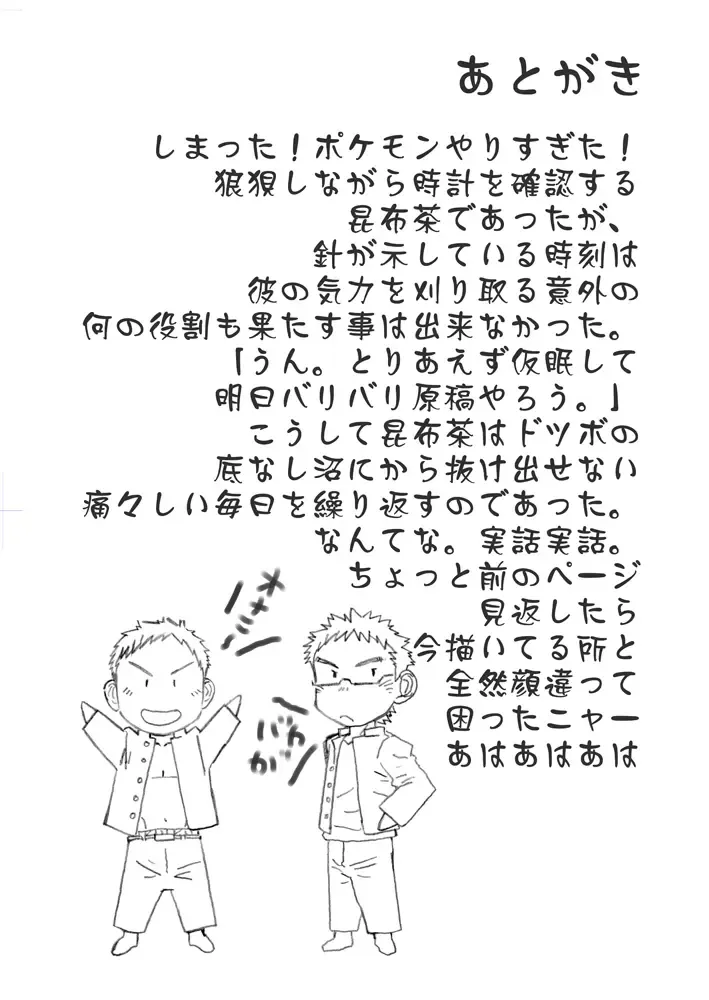 あとがき
しまった！ポケモンやりすぎた！
狼狽しながら時計を確認する
昆布茶であったが、
針が示している時刻は
彼の気力を刈り取る意外の
何の役割も果たす事は出来なかった。
「うん。とりあえず仮眠して
明日バリバリ原稿やろう。」
こうして昆布茶はドツボの
底なし沼にから抜け出せない
痛々しい毎日を繰り返すのであった。
なんてな。実話実話。
ちょっと前のページ
見返したら
今描いてる所と
全然顔違って
困ったニャー
あはあはあは
オメーノ
バカが